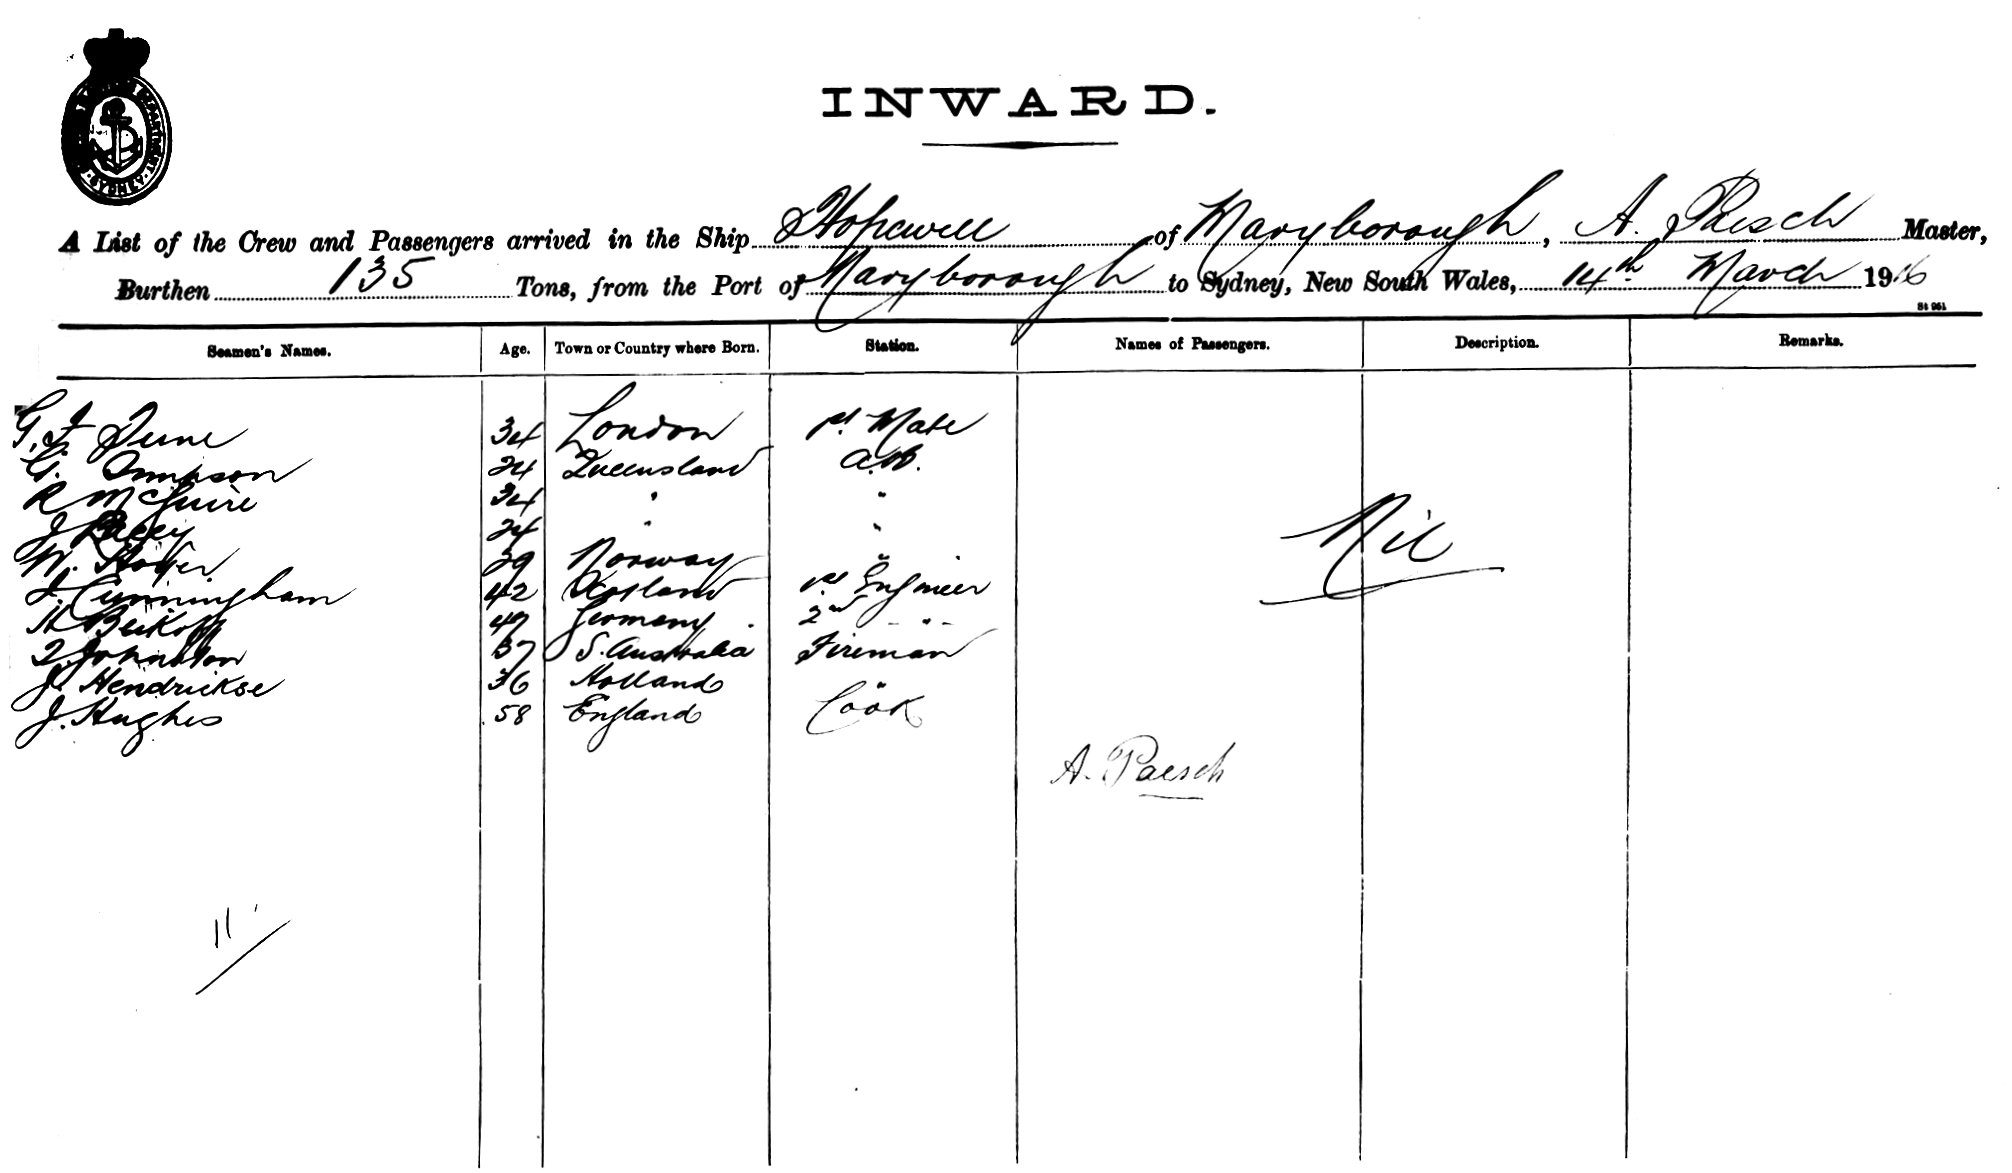 SYDNEY
INWARD.
A List of the Crew and Passengers arrived in the Ship Hopewell of Maryborough, A. Paesch Master,
Burthen 135 Tons, from the Port of Maryborough to Sydney, New South Wales, 14th March 1916
St 951
Seamen's Names. Age. Town or Country where Born. Station. Names of Passengers. Description. Remarks.
G. F. 34 London 1st Mate
G. 24 Queensland A.B.
R McGuire 34 " "
J 24 " "
W. 29 Norway "
J. Cunningham 42 Scotland 1st Engineer
H Beikoff 47 Germany 2nd - " -
J. Johnston 37 S. Australia Fireman
J. Hendrickse 36 Holland "
J. Hughes 58 England Cook
Nil
A. Paesch
11